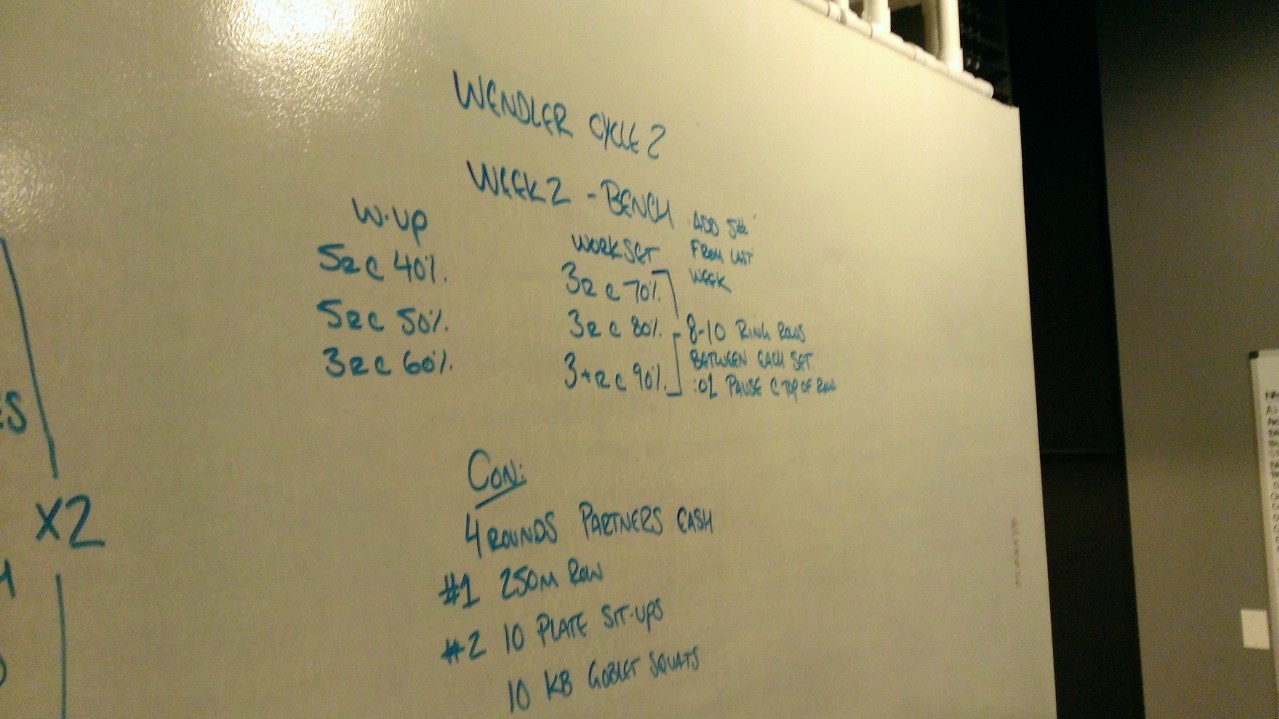 WENDLER CYCLE 2
WEEK 2 - BENCH
W-UP
5R C 40%.
5R C 50%.
3R C 60%.
WORK SET
3R C 70%.
3R C 80%.
3+R C 90%.
ADD 5#
FROM LAST
WEEK
8-10 RING ROWS
BETWEEN EACH SET.
:01 PAUSE C TOP OF ROW
CON:
4 ROUNDS PARTNERS EACH
#1 250M ROW
#2 10 PLATE SIT-UPS
10 KB GOBLET SQUATS
ES
X2